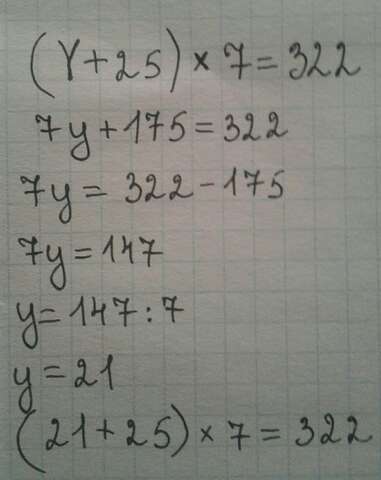 (Y+25)×7=322
7y+175=322
7y=322-175
7y=147
y=147:7
y=21
(21+25)×7=322